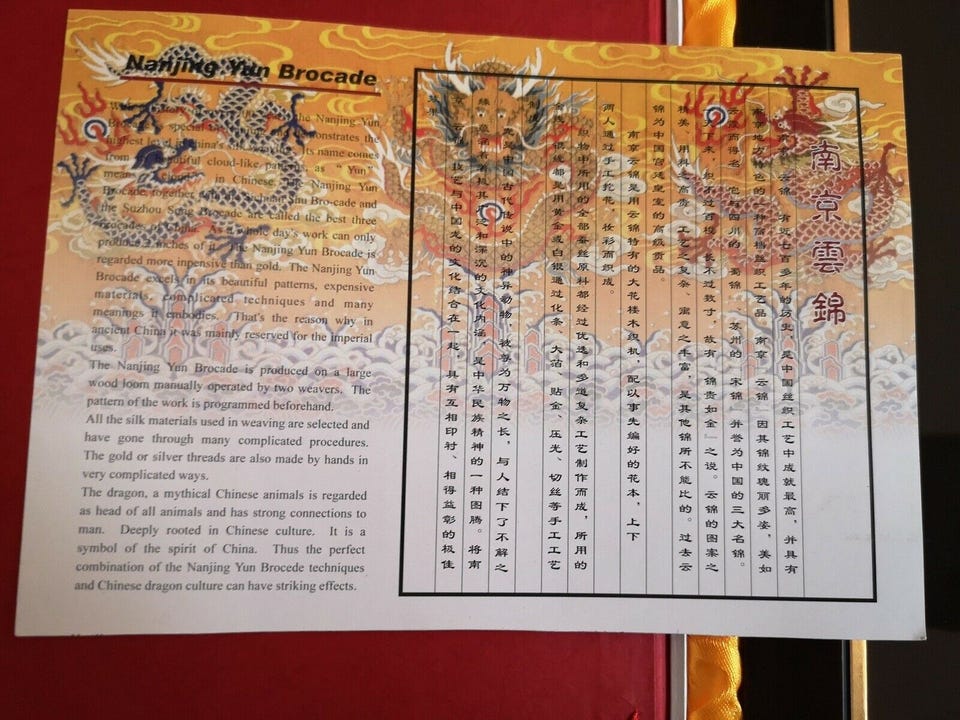 Nanjing Yun Brocade
the Nanjing Yun
special demonstrates the
highest level China's name comes
from beautiful cloud-like as "Yun"
means in Chinese. Nanjing Yun
Brocade, together Bro-cade and
the Suzhou Song Brocade are called the best three
brocades China. As a whole day's work can only
produce inches of it, the Nanjing Yun Brocade is
regarded more inpensive than gold. The Nanjing Yun
Brocade excels in its beautiful patterns, expensive
materials, complicated techniques and many
meanings it embodies. That's the reason why in
ancient China it was mainly reserved for the imperial
uses.
The Nanjing Yun Brocade is produced on a large
wood loom manually operated by two weavers. The
pattern of the work is programmed beforehand.
All the silk materials used in weaving are selected and
have gone through many complicated procedures.
The gold or silver threads are also made by hands in
very complicated ways.
The dragon, a mythical Chinese animals is regarded
as head of all animals and has strong connections to
man. Deeply rooted in Chinese culture. It is a
symbol of the spirit of China. Thus the perfect
combination of the Nanjing Yun Brocede techniques
and Chinese dragon culture can have striking effects.
南京雲錦
云锦』有近七百多年的历史，是中国丝织工艺中成就最高，并具有
南京地方特色的一种高档丝织工艺品。南京『云锦』因其锦纹瑰丽多姿，美如
云霞而得名。它与四川的『蜀锦』、苏州的『宋锦』并誉为中国的三大名锦。
一天下来，织不过百梭，长不过数寸，故有『锦贵如金』之说。云锦的图案之
精美、用料之高贵、工艺之复杂、寓意之丰富，是其他锦所不能比的。过去云
锦为中国宫廷皇室的高级贡品。
南京云锦是用云锦特有的大花楼木织机，配以事先编好的花本，上下
两人通过手工挖花、妆彩而织成。
织物中所用的全部蚕丝原料都经过优选和多道复杂工艺制作而成，所用的
金线、银线都是用黄金或白银通过化条、大箔、贴金、压光、切丝等手工工艺
制成。
龙是中国古代传说中的神异动物，被尊为万物之长，与人结下了不解之
缘，着极其广泛和深沉的文化内涵，是中华民族精神的一种图腾。将南
京云锦技艺与中国龙的文化结合在一起，具有互相印衬、相得益彰的极佳
效果。